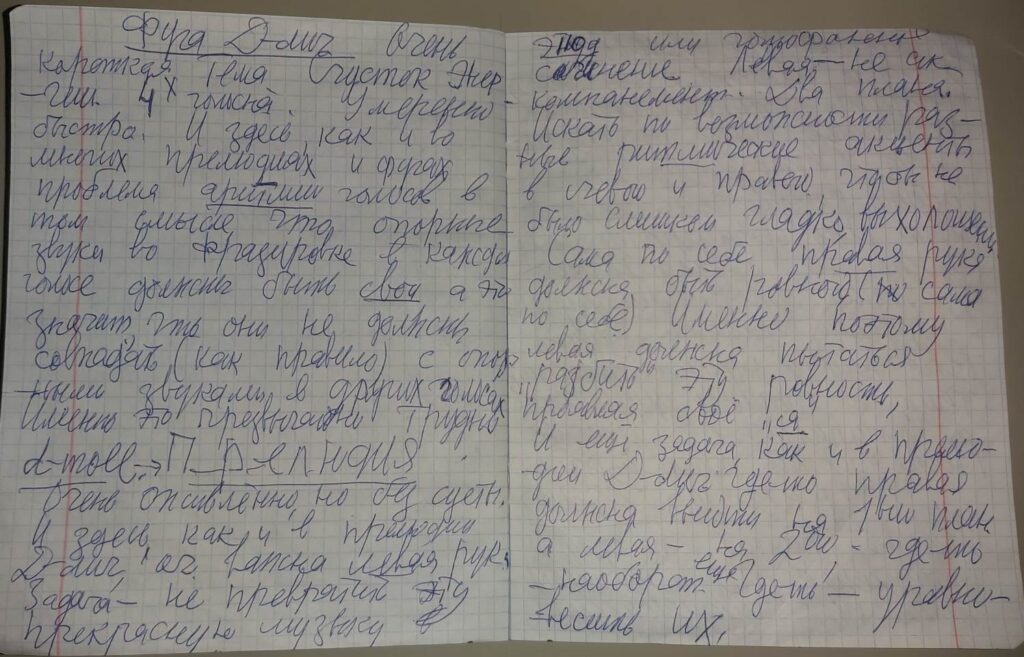 Фуга D-dur Очень
короткая тема (сгусток энер-
-гии. 4х голосна. Умеренно
быстро. И здесь как и во
многих прелюдиях и фугах
проблема аритмии голосов в
том смысле что опорные
звуки во фразировке в каждом
голосе должны быть свои а это
значит, что они не должны
совпадать (как правило) с опор-
ными звуками в других голосах
Именно это чрезвычайно трудно
d-moll → Прелюдия
Очень оживлённо, но без суеты.
И здесь как и в прелюдии
D-dur, оч. важна левая рук.
Задача — не превратить эту
прекрасную музыку в
этюд или
сочинение Левая — не ак-
компанемент. Два плана.
Искать по возможности раз-
ные ритмические акценты
в левой и правой, чтоб не
было слишком гладко, выхолощенн
Сама по себе правая рука
должна быть ровной (но сама
по себе) Именно поэтому
левая должна пытаться
"разбить" эту ровность,
проявляя своё "я
И ещё задача как и в прелю-
дии D-dur где-то правая
должна выйти на 1ый план
а левая — на 2ой - где-то
— наоборот ещё где-то — уравно-
-весить их.